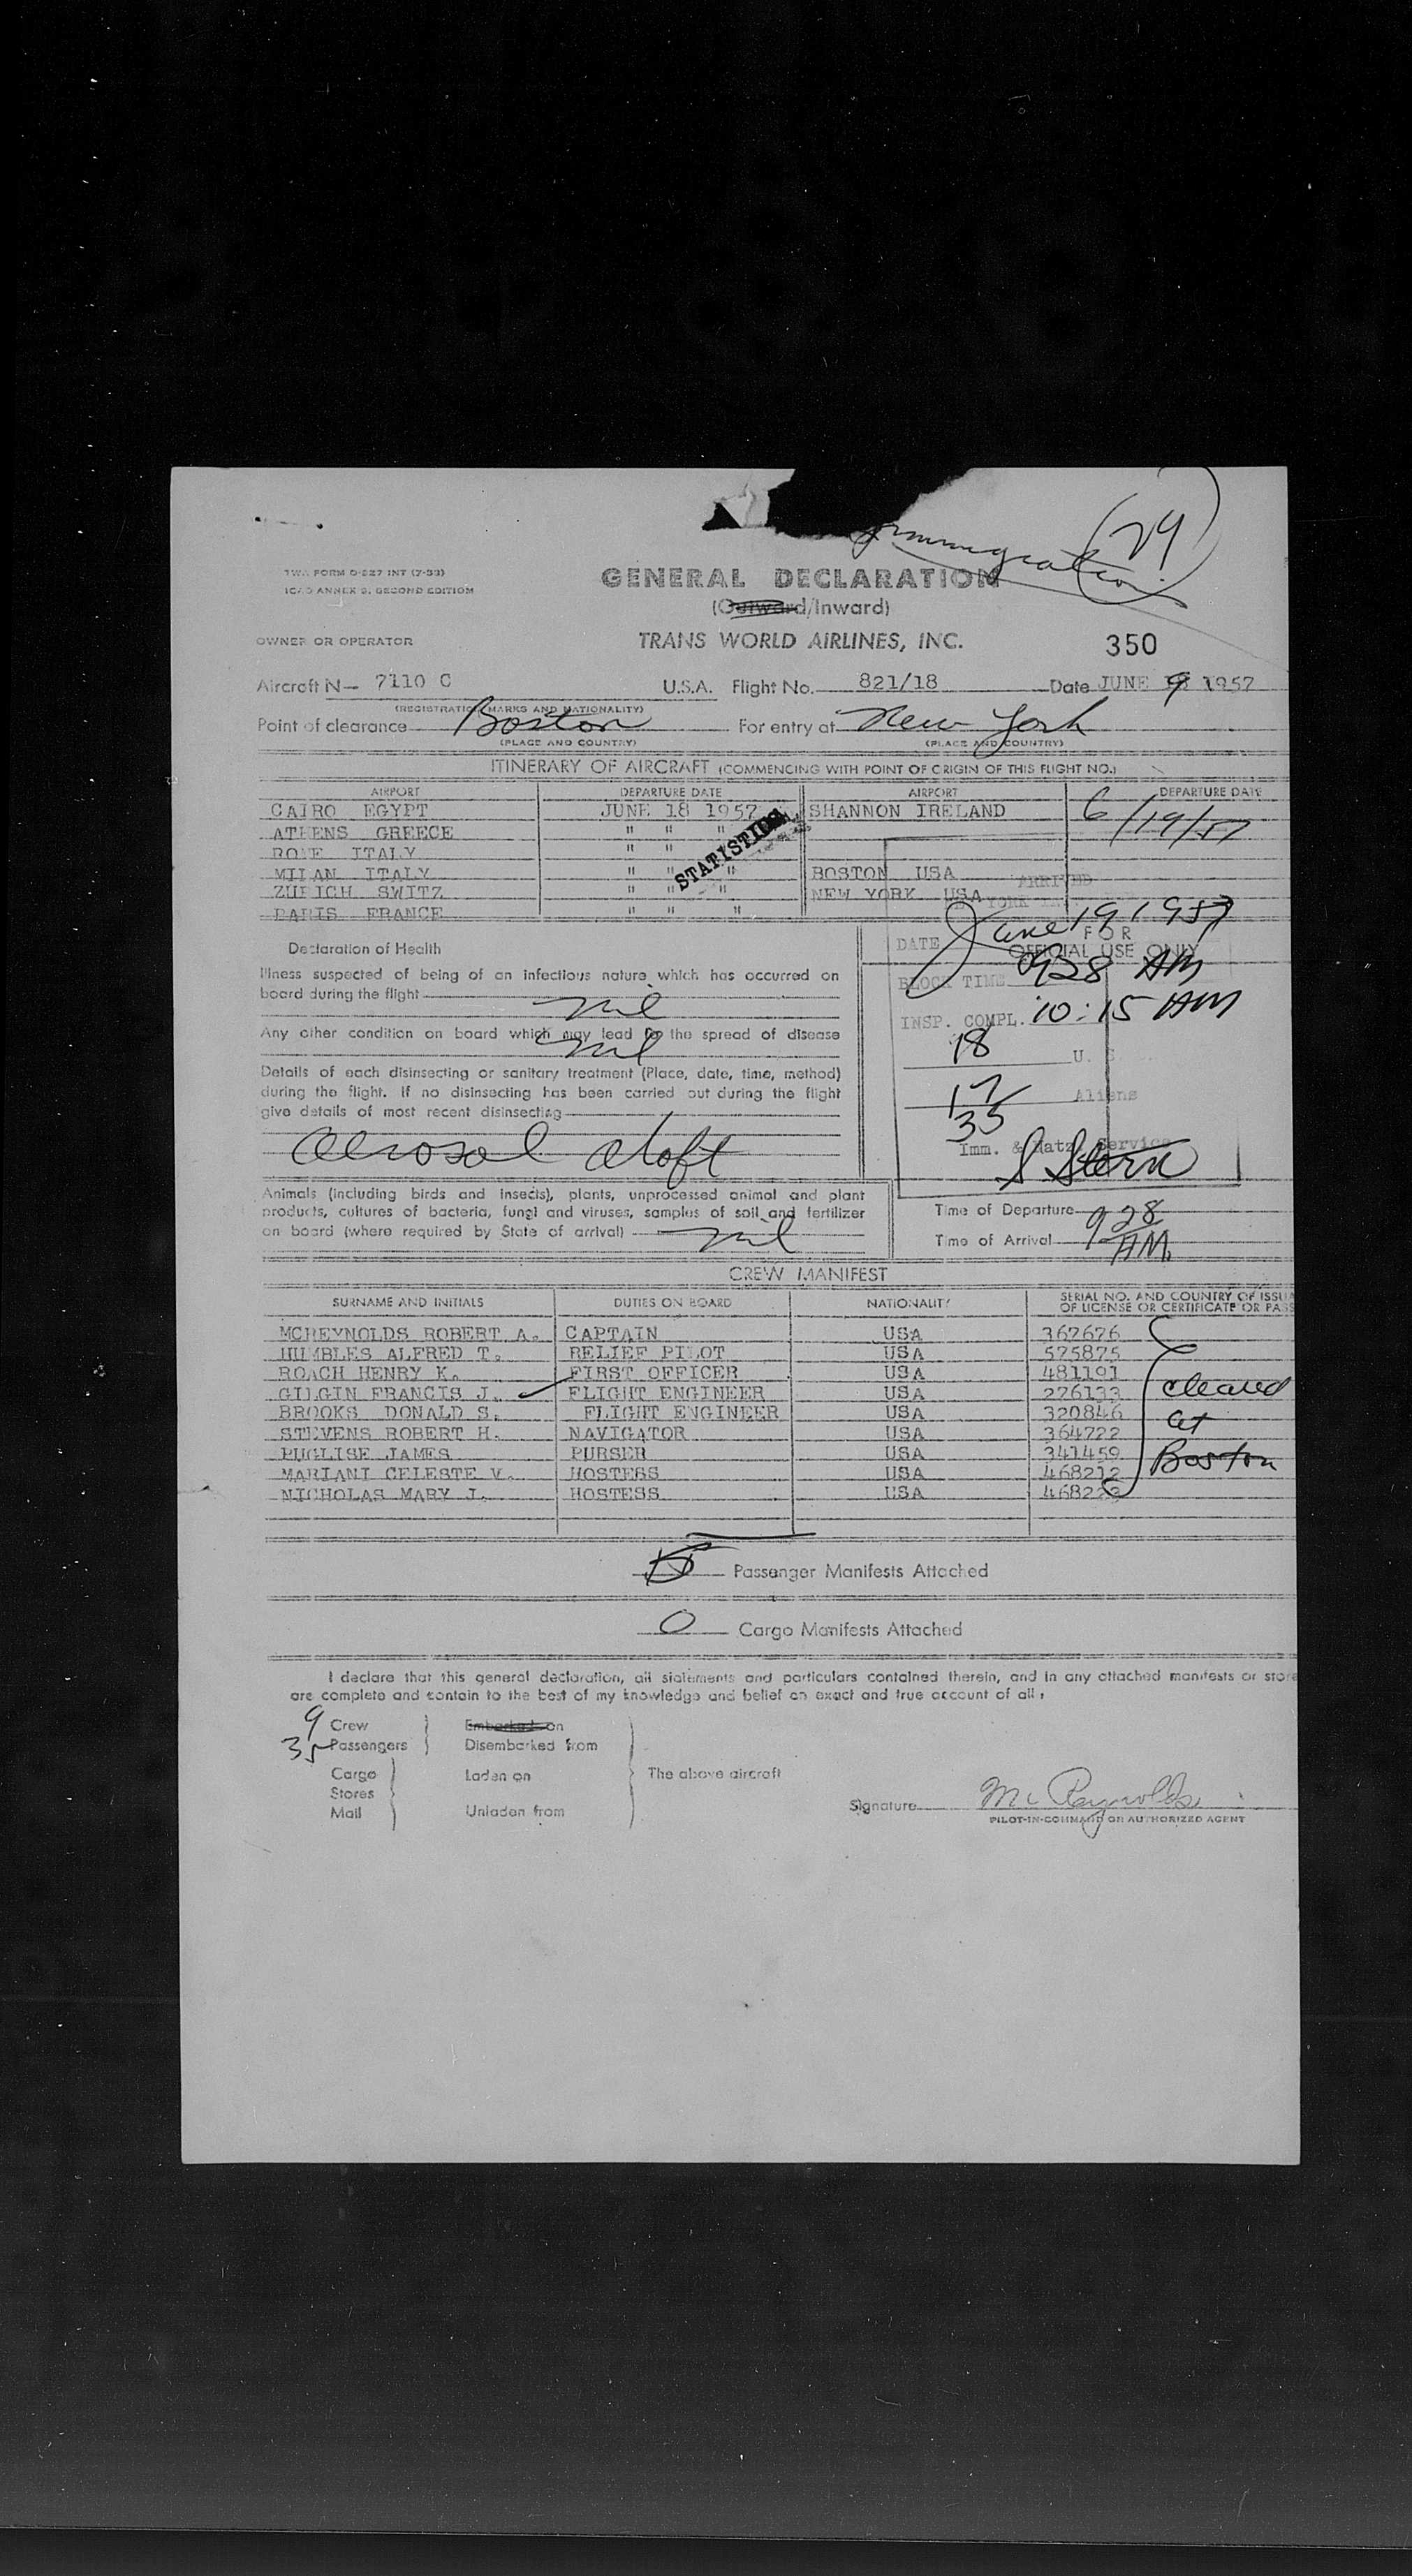 Immigration (29)
TWA FORM O-527 INT (7-53)
ICAO ANNEX 9, SECOND EDITION
GENERAL DECLARATION
(Outward/Inward)
OWNER OR OPERATOR TRANS WORLD AIRLINES, INC. 350
Aircraft N— 7110 C U.S.A. Flight No. 821/18 Date JUNE 9 1957
(REGISTRATION MARKS AND NATIONALITY)
Point of clearance Boston For entry at New York
(PLACE AND COUNTRY) (PLACE AND COUNTRY)
ITINERARY OF AIRCRAFT (COMMENCING WITH POINT OF ORIGIN OF THIS FLIGHT NO.)
AIRPORT DEPARTURE DATE AIRPORT DEPARTURE DATE
CAIRO EGYPT JUNE 18 1957 SHANNON IRELAND 6/19/57
ATHENS GREECE " " "
ROME ITALY " "
MILAN ITALY " " " BOSTON USA
ZURICH SWITZ " " " NEW YORK USA
PARIS FRANCE " " "
STATISTICAL
ARRIVED
YORK
DATE June 19 1957
FOR
OFFICIAL USE ONLY
BLOCK TIME 928 AM
INSP. COMPL. 10:15 AM
18 U. S.
17 Aliens
35
Imm. & Natz. Service
S Stern
Declaration of Health
Illness suspected of being of an infectious nature which has occurred on
board during the flight nil
Any other condition on board which may lead to the spread of disease
nil
Details of each disinsecting or sanitary treatment (Place, date, time, method)
during the flight. If no disinsecting has been carried out during the flight
give details of most recent disinsecting
Aerosol aloft
Animals (including birds and insects), plants, unprocessed animal and plant
products, cultures of bacteria, fungi and viruses, samples of soil and fertilizer
on board (where required by State of arrival) nil
Time of Departure
Time of Arrival 928 AM
CREW MANIFEST
SURNAME AND INITIALS DUTIES ON BOARD NATIONALITY SERIAL NO. AND COUNTRY OF ISSUA
OF LICENSE OR CERTIFICATE OR PASS
MCREYNOLDS ROBERT A. CAPTAIN USA 367676
HUMBLES ALFRED T. RELIEF PILOT USA 575875
ROACH HENRY K. FIRST OFFICER USA 481191
GILGIN FRANCIS J. FLIGHT ENGINEER USA 276133
BROOKS DONALD S. FLIGHT ENGINEER USA 320846
STEVENS ROBERT H. NAVIGATOR USA 364722
PUGLISE JAMES PURSER USA 341459
MARIANI CELESTE V. HOSTESS USA 468212
NICHOLAS MARY J. HOSTESS USA
cleared
at
Boston
Passenger Manifests Attached
0 Cargo Manifests Attached
I declare that this general declaration, all statements and particulars contained therein, and in any attached manifests or store
are complete and contain to the best of my knowledge and belief an exact and true account of all:
9 Crew Embarked on
35 Passengers Disembarked from
Cargo Laden on The above aircraft
Stores
Mail Unladen from
Signature McReynolds
PILOT-IN-COMMAND OR AUTHORIZED AGENT